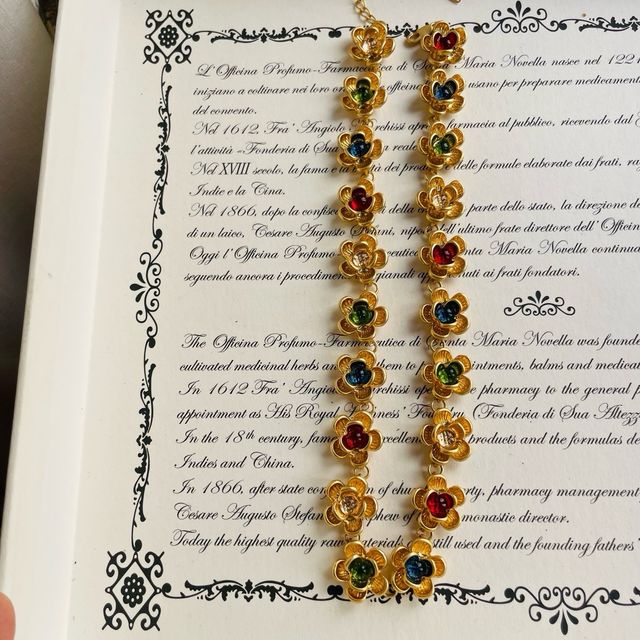 L'Officina Profumo-Farmaceutica di S Maria Novella nasce nel 122
iniziano a coltivare nei loro or officin usano per preparare medicamen
del convento.
Nel 1612, Fra' Angiolo rchissi apr farmacia al pubblico, ricevendo dal
l'attività "Fonderia di Sua reale
Nel XVIII secolo, la fama e la tà dei prod delle formule elaborate dai frati, ra
Indie e la Cina.
Nel 1866, dopo la confisc i della c parte dello stato, la direzione de
di un laico, Cesare Augusto S ni, nip ll'ultimo frate direttore dell'Offici
Oggi l'Officina Profumo- eutica nta Maria Novella continua
seguendo ancora i procedimen igianali a enuti ai frati fondatori.
The Officina Profumo-Farmaceutica di Santa Maria Novella was founde
cultivated medicinal herbs an them to intments, balms and medicat
In 1612 Fra' Angio rchissi ope e pharmacy to the general p
appointment as His Royal H ness' Foundry (Fonderia di Sua Altezz
In the 18th century, fame xcellen products and the formulas de
Indies and China.
In 1866, after state con n of chu rty, pharmacy management
Cesare Augusto Stefan phew of monastic director.
Today the highest quality raw materials still used and the founding fathers'